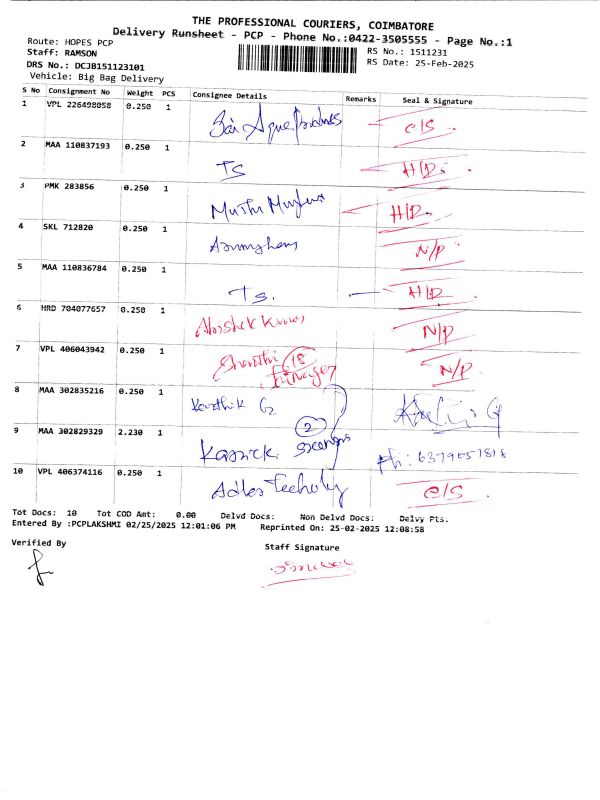 THE PROFESSIONAL COURIERS, COIMBATORE
Delivery Runsheet - PCP - Phone No.:0422-3505555 - Page No.:1
Route: HOPES PCP
RS No.: 1511231
Staff: RAMSON
RS Date: 25-Feb-2025
DRS No.: DCJB151123101
Vehicle: Big Bag Delivery
S No Consignment No Weight PCS Consignee Details Remarks Seal & Signature
1 VPL 226498058 0.250 1 Sai Aqua C/S.
2 MAA 110837193 0.250 1 TS H/D.
3 PMK 283856 0.250 1 H/D.
4 SKL 712820 0.250 1 N/P
5 MAA 110836784 0.250 1 Ts. H/D
6 HRD 704077657 0.250 1 Abishek Kumar N/P
7 VPL 406043942 0.250 1 Shanthi N/P.
8 MAA 302835216 0.250 1 Karthik G
9 MAA 302829329 2.230 1 2 Ph: 6379057818
10 VPL 406374116 0.250 1 C/S.
Tot Docs: 10 Tot COD Amt: 0.00 Delvd Docs: Non Delvd Docs: Delvy Pts.
Entered By :PCPLAKSHMI 02/25/2025 12:01:06 PM Reprinted On: 25-02-2025 12:08:58
Verified By
Staff Signature